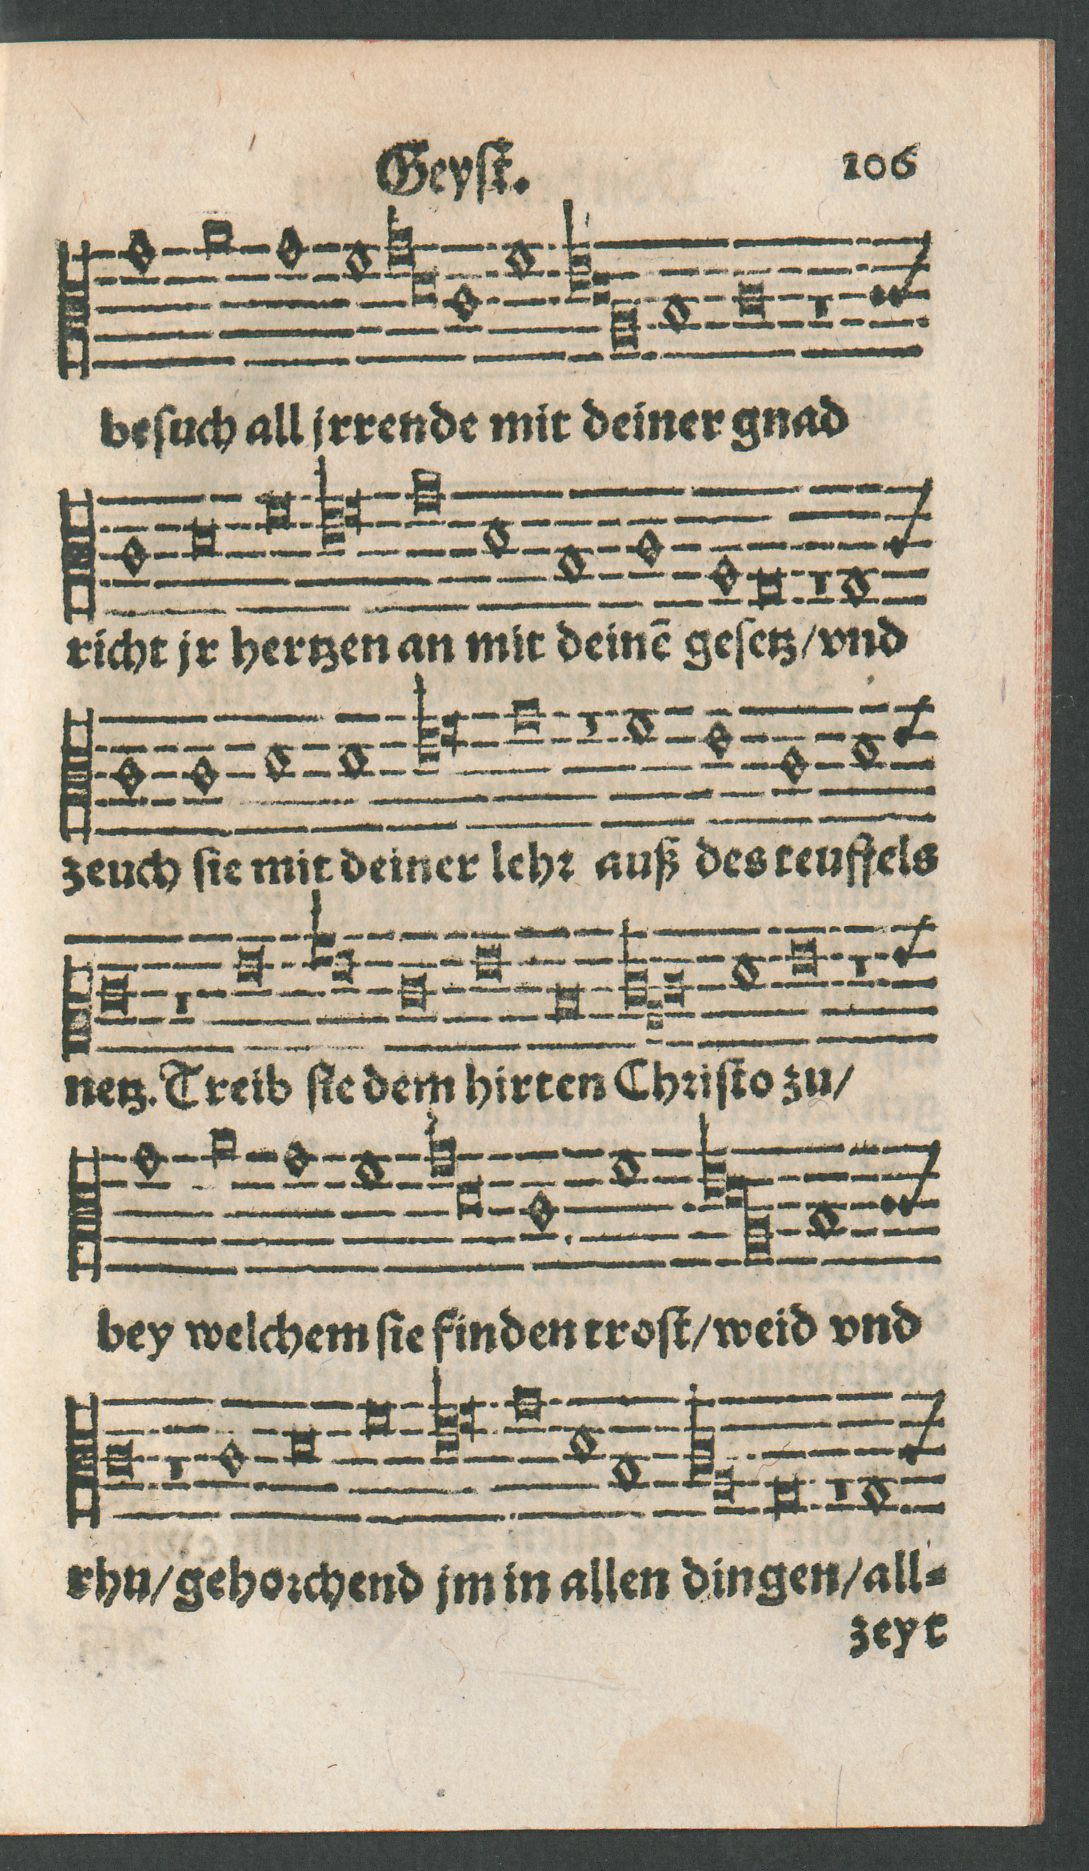 Geyſt. 106
beſuch all jrrende mit deiner gnad
richt jr hertzen an mit deinē geſetz/vnd
zeuch ſie mit deiner lehꝛ auß des teuffels
netz. Treib ſie dem hirten Chꝛiſto zu/
bey welchem ſie finden troſt/weid vnd
rhu/gehoꝛchend jm in allen dingen/all⸗
zeyt